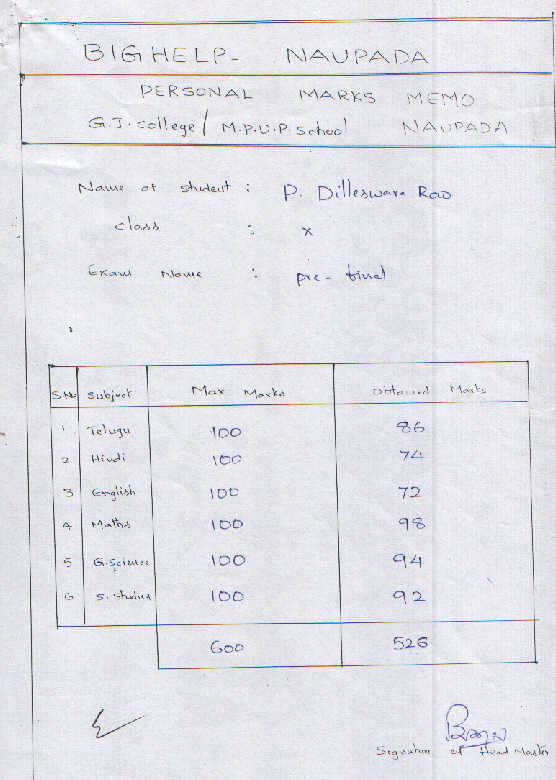 BIGHELP- NAUPADA
PERSONAL MARKS MEMO
G.J. college / M.P.U.P. School NAUPADA
Name of student : P. Dilleswara Rao
class : X
Exam Name : pre-final
S.No Subject Max Marks Obtained Marks
1 Telugu 100 86
2 Hindi 100 74
3 English 100 72
4 Maths 100 98
5 G.Science 100 94
6 S. Studies 100 92
600 526
Signature of Head Master